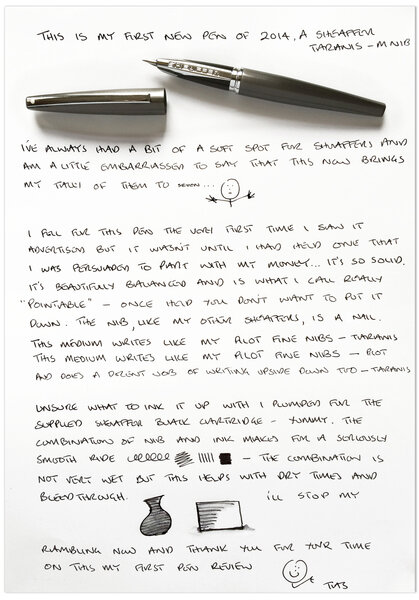 THIS IS MY FIRST NEW PEN OF 2014, A SHEAFFER
TARANIS - M NIB
I'VE ALWAYS HAD A BIT OF A SOFT SPOT FOR SHEAFFERS AND
AM A LITTLE EMBARRASSED TO SAY THAT THIS NOW BRINGS
MY TALLY OF THEM TO SEVEN...
I FELL FOR THIS PEN THE VERY FIRST TIME I SAW IT
ADVERTISED BUT IT WASN'T UNTIL I HAD HELD ONE THAT
I WAS PERSUADED TO PART WITH MY MONEY... IT'S SO SOLID.
IT'S BEAUTIFULLY BALANCED AND IS WHAT I CALL REALLY
"POINTABLE" - ONCE HELD YOU DON'T WANT TO PUT IT
DOWN. THE NIB, LIKE MY OTHER SHEAFFERS, IS A NAIL.
THIS MEDIUM WRITES LIKE MY PILOT FINE NIBS - TARANIS
THIS MEDIUM WRITES LIKE MY PILOT FINE NIBS - PILOT
AND DOES A DECENT JOB OF WRITING UPSIDE DOWN TOO - TARANIS
UNSURE WHAT TO INK IT UP WITH I PLUMPED FOR THE
SUPPLIED SHEAFFER BLACK CARTRIDGE - YUMMY. THE
COMBINATION OF NIB AND INK MAKES FOR A SERIOUSLY
SMOOTH RIDE - THE COMBINATION IS
NOT VERY WET BUT THIS HELPS WITH DRY TIMES AND
BLEEDTHROUGH. I'LL STOP MY
RAMBLING NOW AND THANK YOU FOR YOUR TIME
ON THIS MY FIRST PEN REVIEW